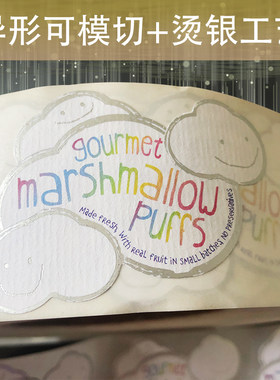 异形可模切+烫银工艺
gourmet
marshmallow
puffs
Made fresh with real fruit in small batches no preservatives